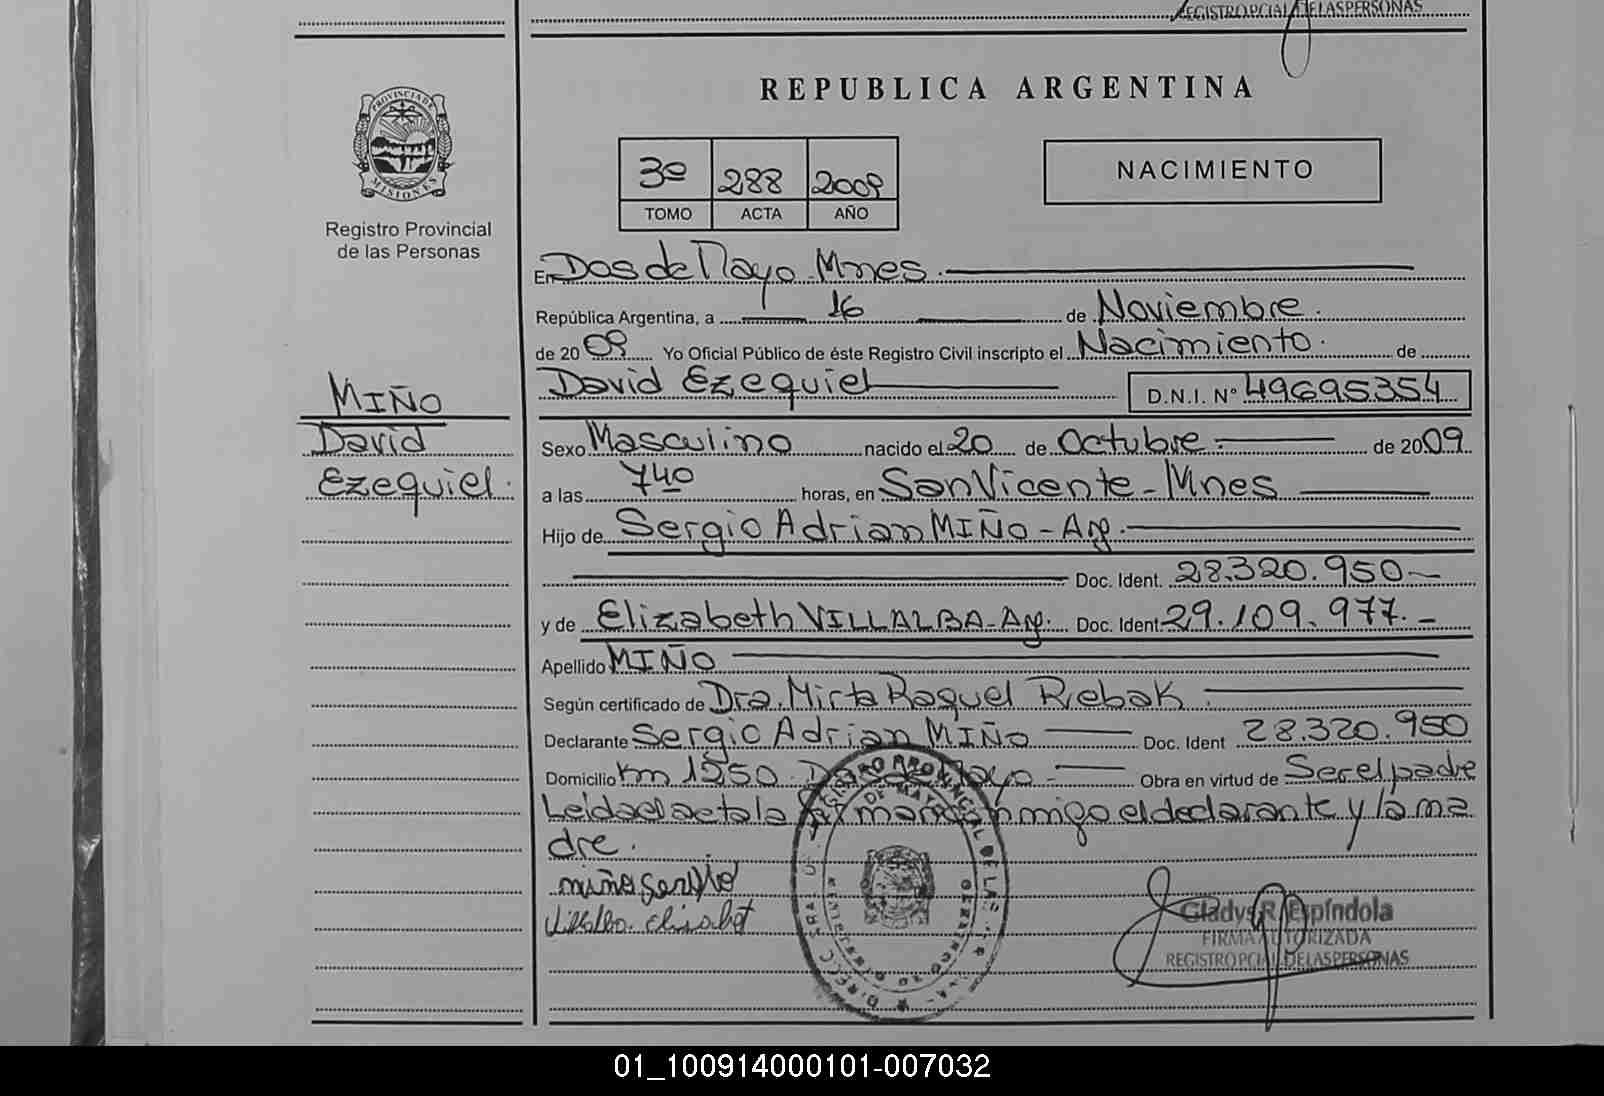 REGISTRO PCIAL DE LAS PERSONAS
REPUBLICA ARGENTINA
PROVINCIA DE MISIONES
Registro Provincial
de las Personas
3º 288 2009
TOMO ACTA AÑO
NACIMIENTO
En Dos de Mayo Mnes.
República Argentina, a 16 de Noviembre.
de 20 09 Yo Oficial Público de éste Registro Civil inscripto el Nacimiento. de
David Ezequiel D.N.I. Nº 49695354
MIÑO
David
Ezequiel.
Sexo Masculino nacido el 20 de Octubre. de 2009.
a las 7 40 horas, en San Vicente - Mnes
Hijo de Sergio Adrian MIÑO - Arg.
Doc. Ident. 28.320.950
y de Elizabeth VILLALBA - Arg. Doc. Ident 29.109.977. -
Apellido MIÑO
Según certificado de Dra. Mirta Raquel Rebak.
Declarante Sergio Adrian MIÑO Doc. Ident 28.320.950
Domicilio Km 1250 Dos de Mayo - Obra en virtud de Ser el padre
Leida el acta la firman conmigo el declarante y la ma
dre.
miño Sergio
Villalba Elisabet
REGISTRO PROVINCIAL DE LAS
DE MAYO
Gladys R. Espíndola
FIRMA AUTORIZADA
REGISTRO PCIAL DE LAS PERSONAS
01_100914000101-007032